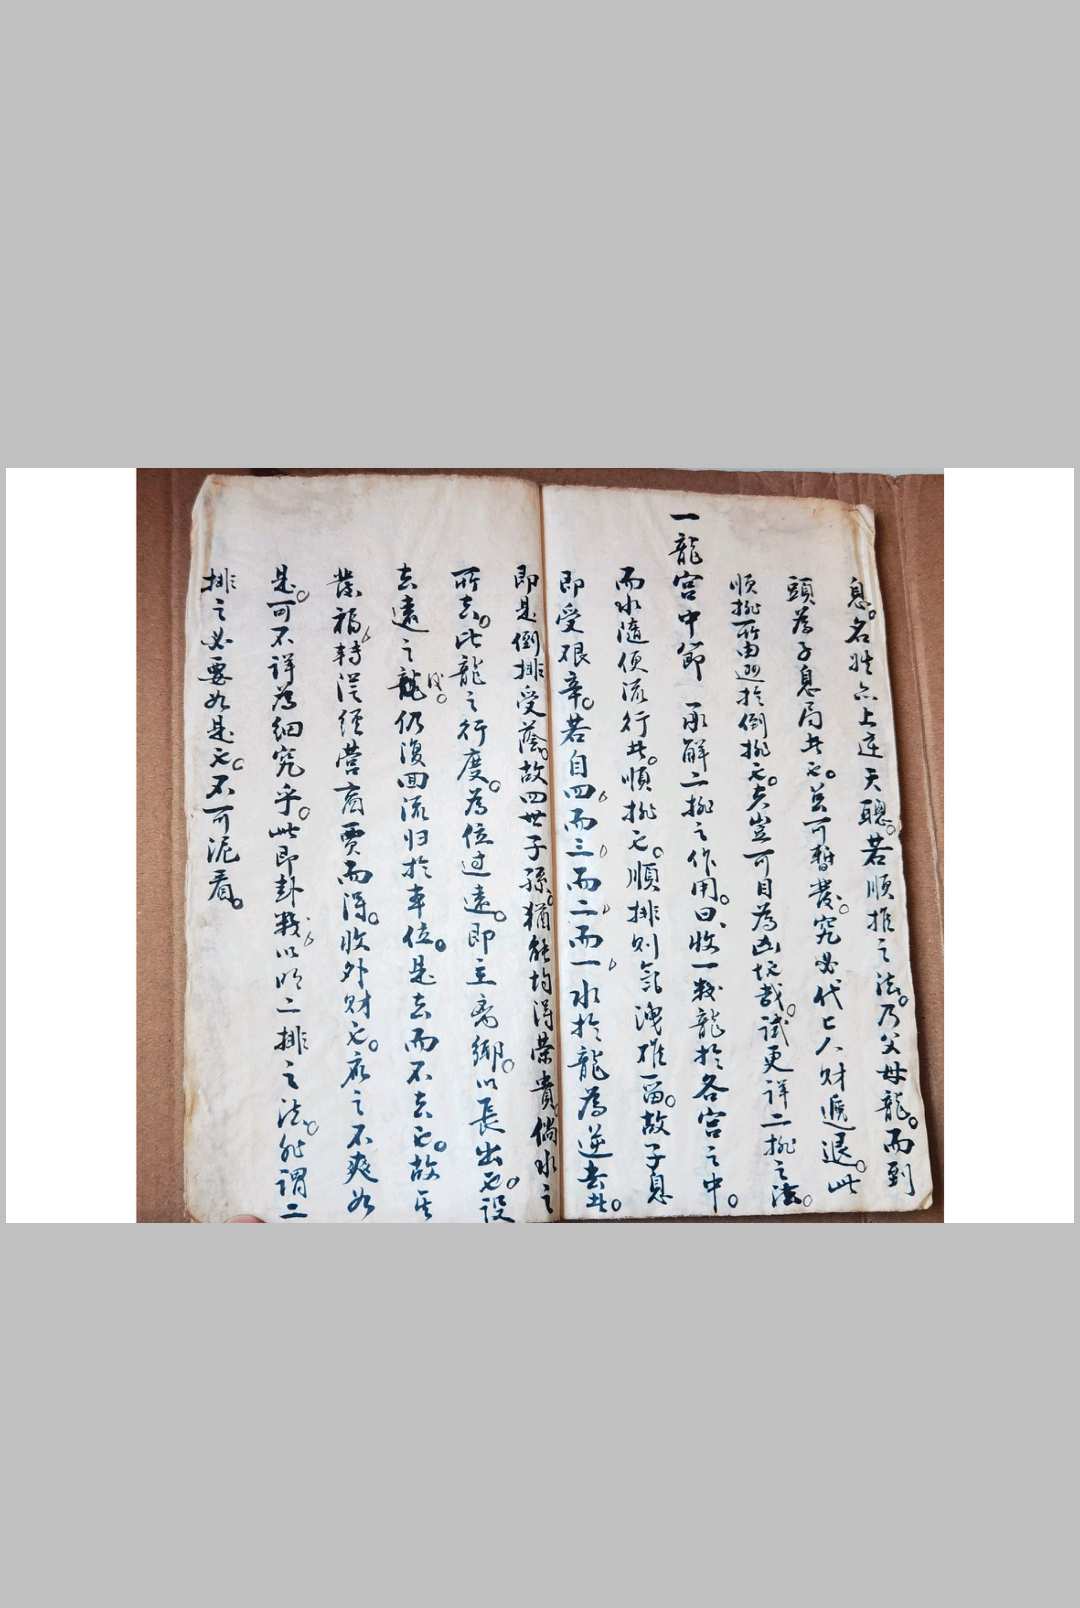 息。名姓亦上達天聰。若順推之法。乃父母龍。而到
頭為子息局者也。豈可暫發。究必代亡人財遞退。此
順排所由迥於倒排也。夫豈可目為凶坟哉。試更詳二排之法。
一龍宮中節 承解二排之作用。曰、收一教龍於各宮之中。
而水隨便流行者。順排也。順排則氣洩難留。故子息
即受艱辛。若自四而三而二而一水於龍為逆去者。
即是倒排受蔭。故四世子孫。猶能均得榮貴。倘水之
所去。此龍之行度。為位过遠。即主离鄉。以長出也。設
去遠之龍。仍復回流归於本位。是去而不去也。故主
發福轉從經營商賈而得。收外財也。應之不爽如
是。可不詳為細究乎。此即卦裁以明二排之法。所謂二
排之必要如是也。不可泥看。